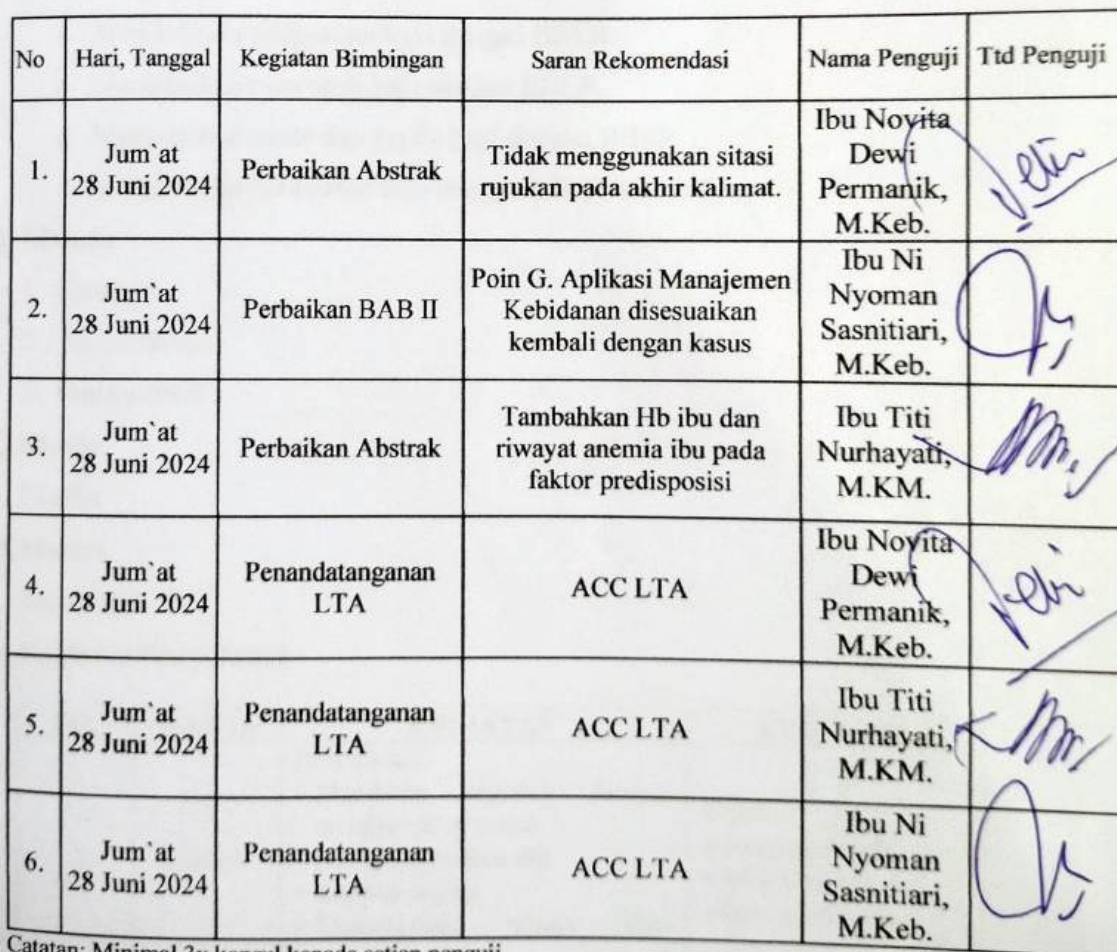 No Hari, Tanggal Kegiatan Bimbingan Saran Rekomendasi Nama Penguji Ttd Penguji
1.
Jum`at
28 Juni 2024
Perbaikan Abstrak
Tidak menggunakan sitasi
rujukan pada akhir kalimat.
Ibu Novita
Dewi
Permanik,
M.Keb.
2.
Jum`at
28 Juni 2024
Perbaikan BAB II
Poin G. Aplikasi Manajemen
Kebidanan disesuaikan
kembali dengan kasus
Ibu Ni
Nyoman
Sasnitiari,
M.Keb.
3.
Jum`at
28 Juni 2024
Perbaikan Abstrak
Tambahkan Hb ibu dan
riwayat anemia ibu pada
faktor predisposisi
Ibu Titi
Nurhayati,
M.KM.
4.
Jum`at
28 Juni 2024
Penandatanganan
LTA
ACC LTA
Ibu Novita
Dewi
Permanik,
M.Keb.
5.
Jum`at
28 Juni 2024
Penandatanganan
LTA
ACC LTA
Ibu Titi
Nurhayati,
M.KM.
6.
Jum`at
28 Juni 2024
Penandatanganan
LTA
ACC LTA
Ibu Ni
Nyoman
Sasnitiari,
M.Keb.
Catatan: Minimal 3x konsul kepada setiap penguji